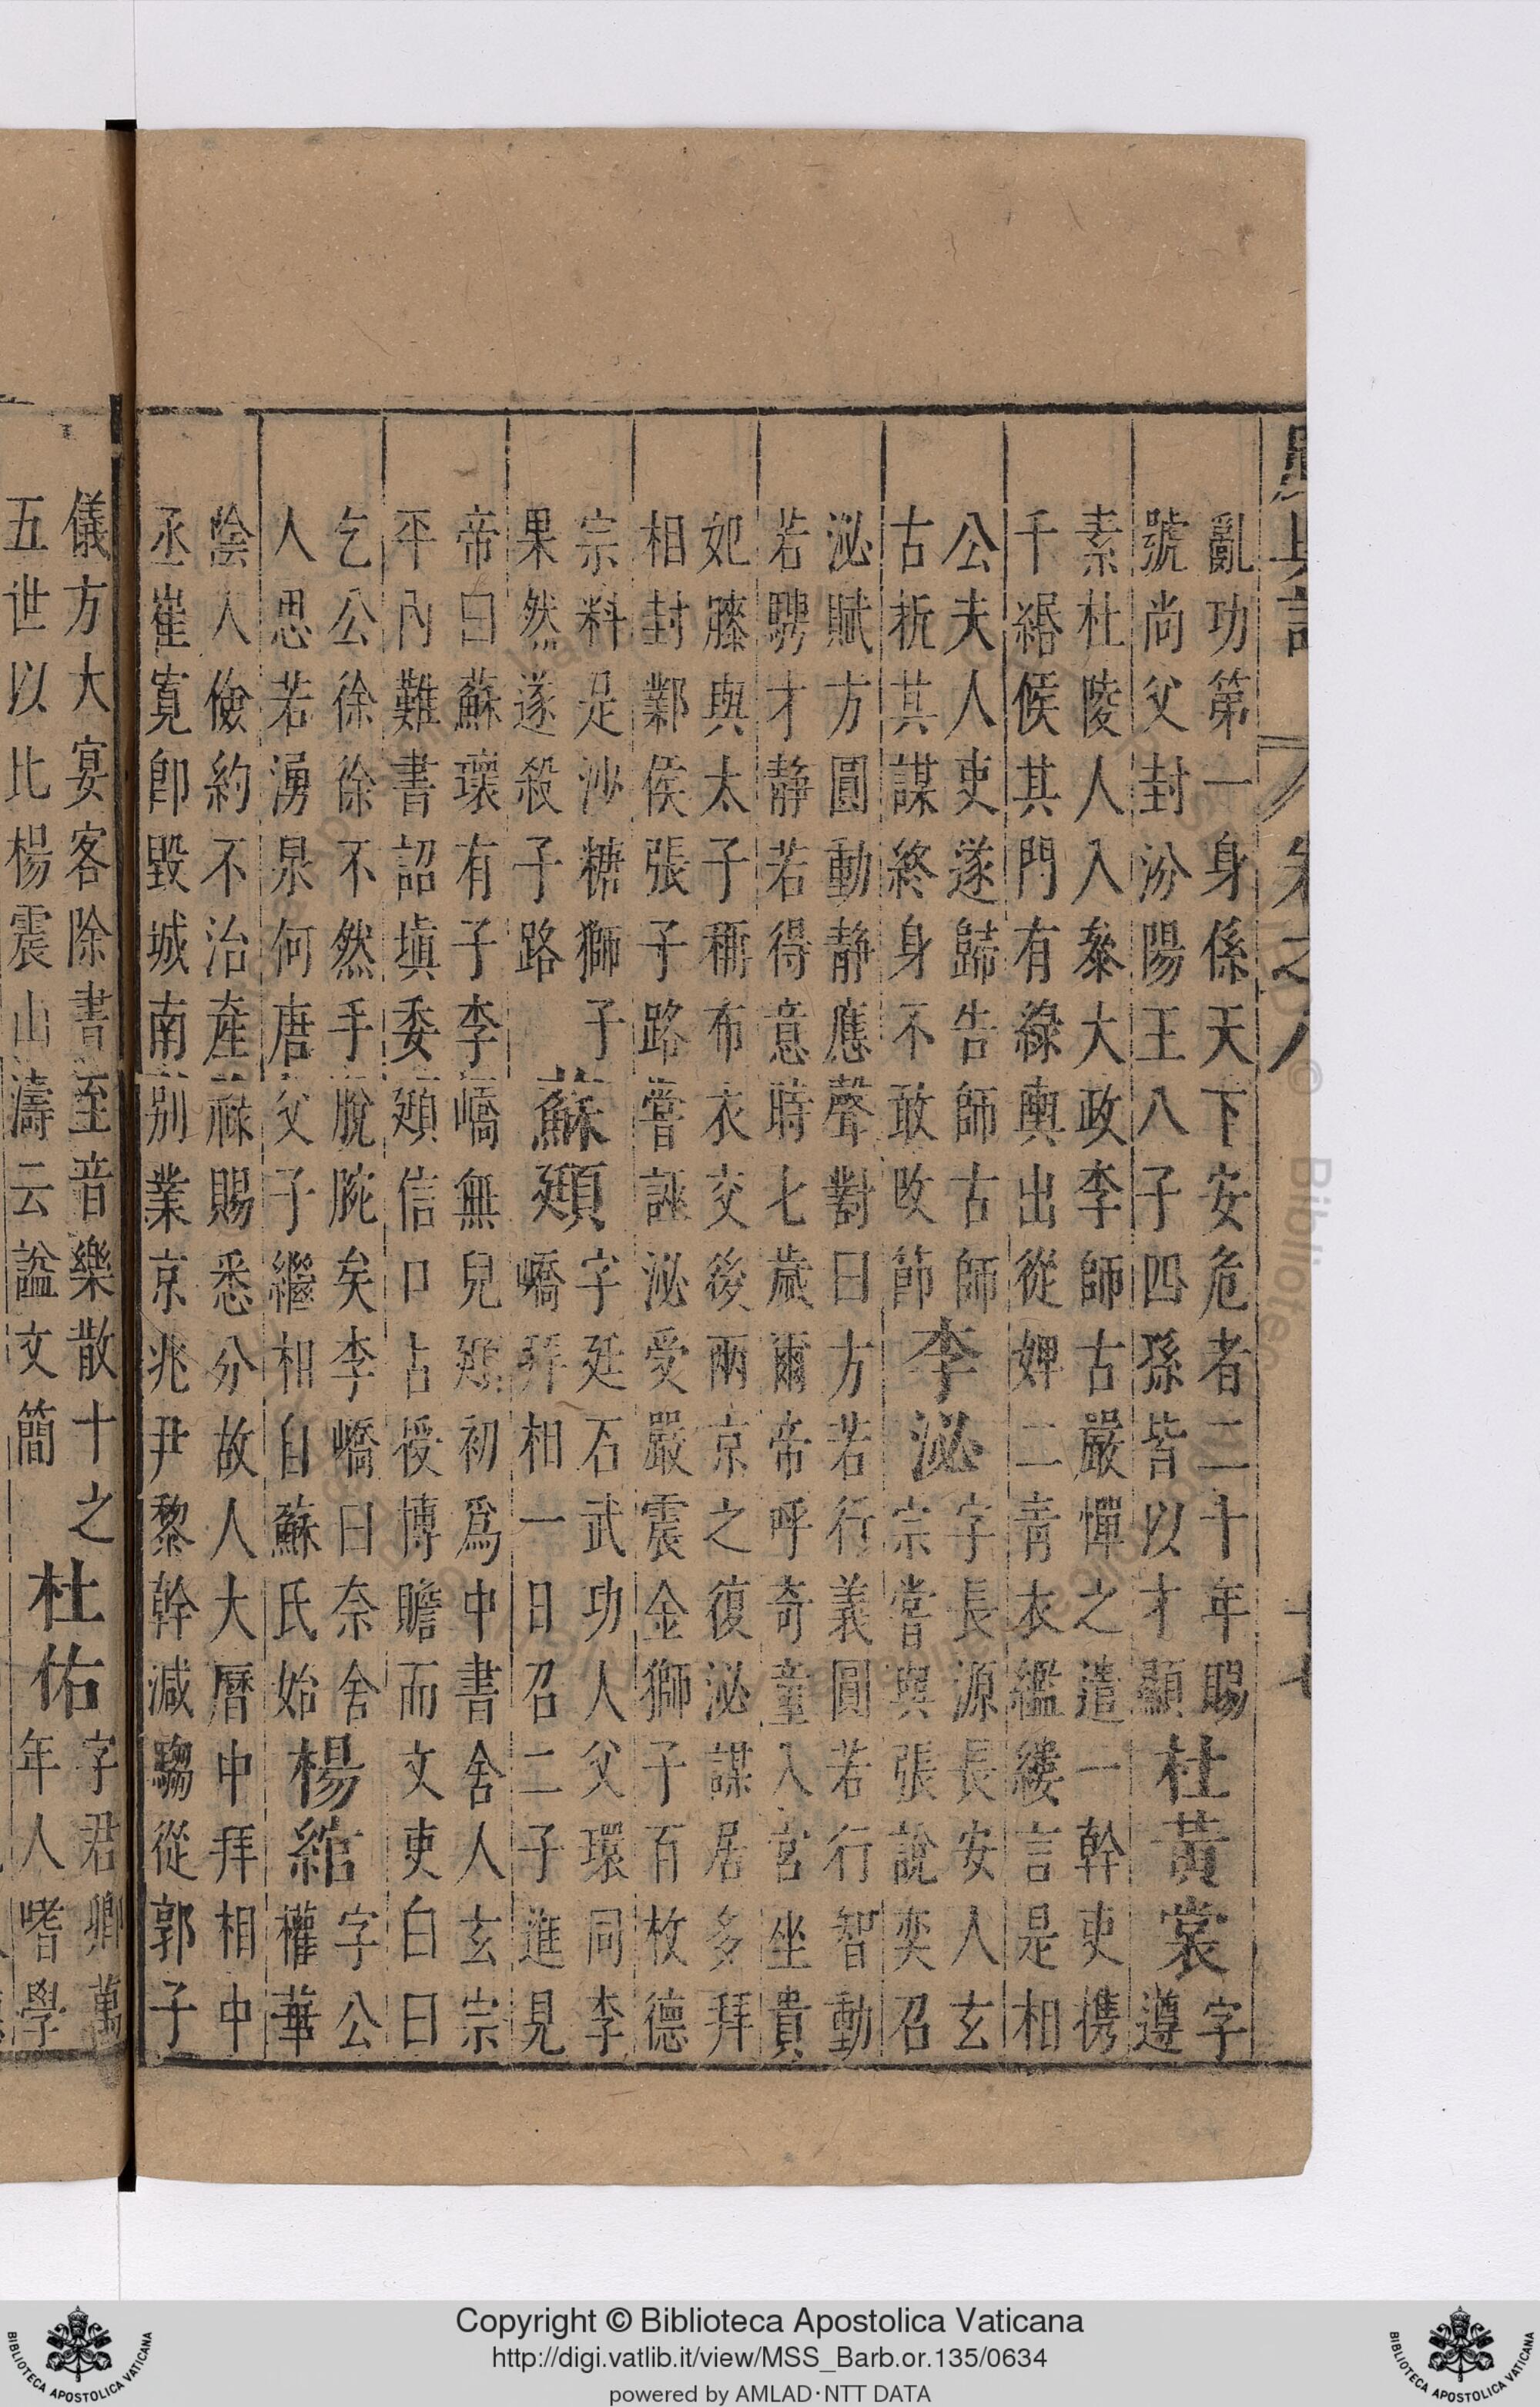 亂功第一身係天下安危者二十年賜
號尚父封汾陽王八子四孫皆以才顯
杜黃裳
字
遵
素杜陵人入叅大政李師古嚴憚之遣一幹吏携
千緡候其門有綠輿出從婢二靑衣繿縷言是相
公夫人吏遂歸告師古師
古折其謀終身不敢改節
李泌
字長源長安人玄
宗嘗與張說奕召
泌賦方圓動静應聲對曰方若行義圓若行智動
若騁才静若得意時七歲爾帝呼奇童入宮坐貴
妃膝與太子稱布衣交後兩京之復泌謀居多拜
相封鄴侯張子路嘗誣泌受嚴震金獅子百枚德
宗料是沙糖獅子
果然遂殺子路
蘇頲
字廷石武功人父環同李
嶠拜相一日召二子進見
帝曰蘇環有子李嶠無兒頲初爲中書舍人玄宗
平內難書詔塡委頲信口占授博贍而文吏白曰
乞公徐徐不然手脫腕矣李嶠曰奈舍
人思若湧泉何唐父子繼相自蘇氏始
楊綰
字公
權華
陰人儉約不治產祿賜悉分故人大曆中拜相中
丞崔寛卽毀城南別業京兆尹黎幹减騶從郭子
儀方大宴客除書至音樂散十之
五世以比楊震山濤云謚文簡
杜佑
字君卿萬
年人嗜學
Copyright © Biblioteca Apostolica Vaticana
http://digi.vatlib.it/view/MSS_Barb.or.135/0634
powered by AMLAD·NTT DATA